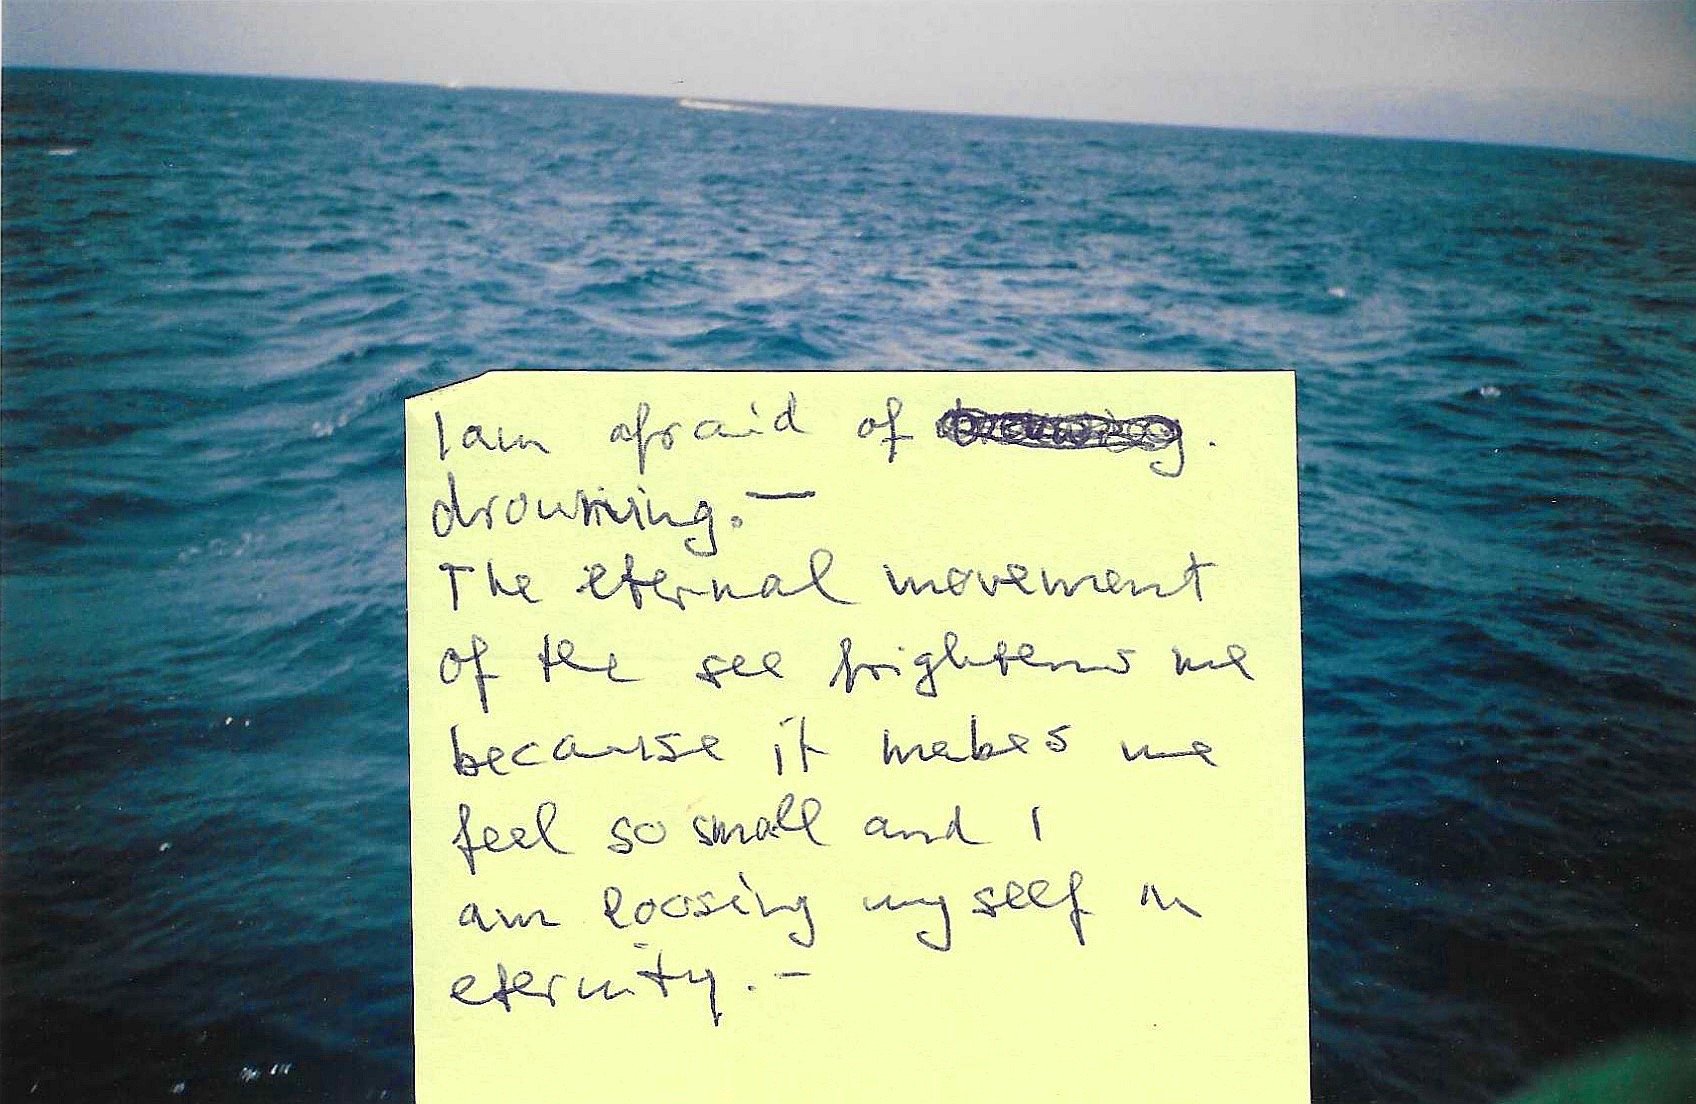 I am afraid of .
drowning. —
The eternal movement
of the see frightens me
because it makes me
feel so small and I
am loosing myself in
eternity. –